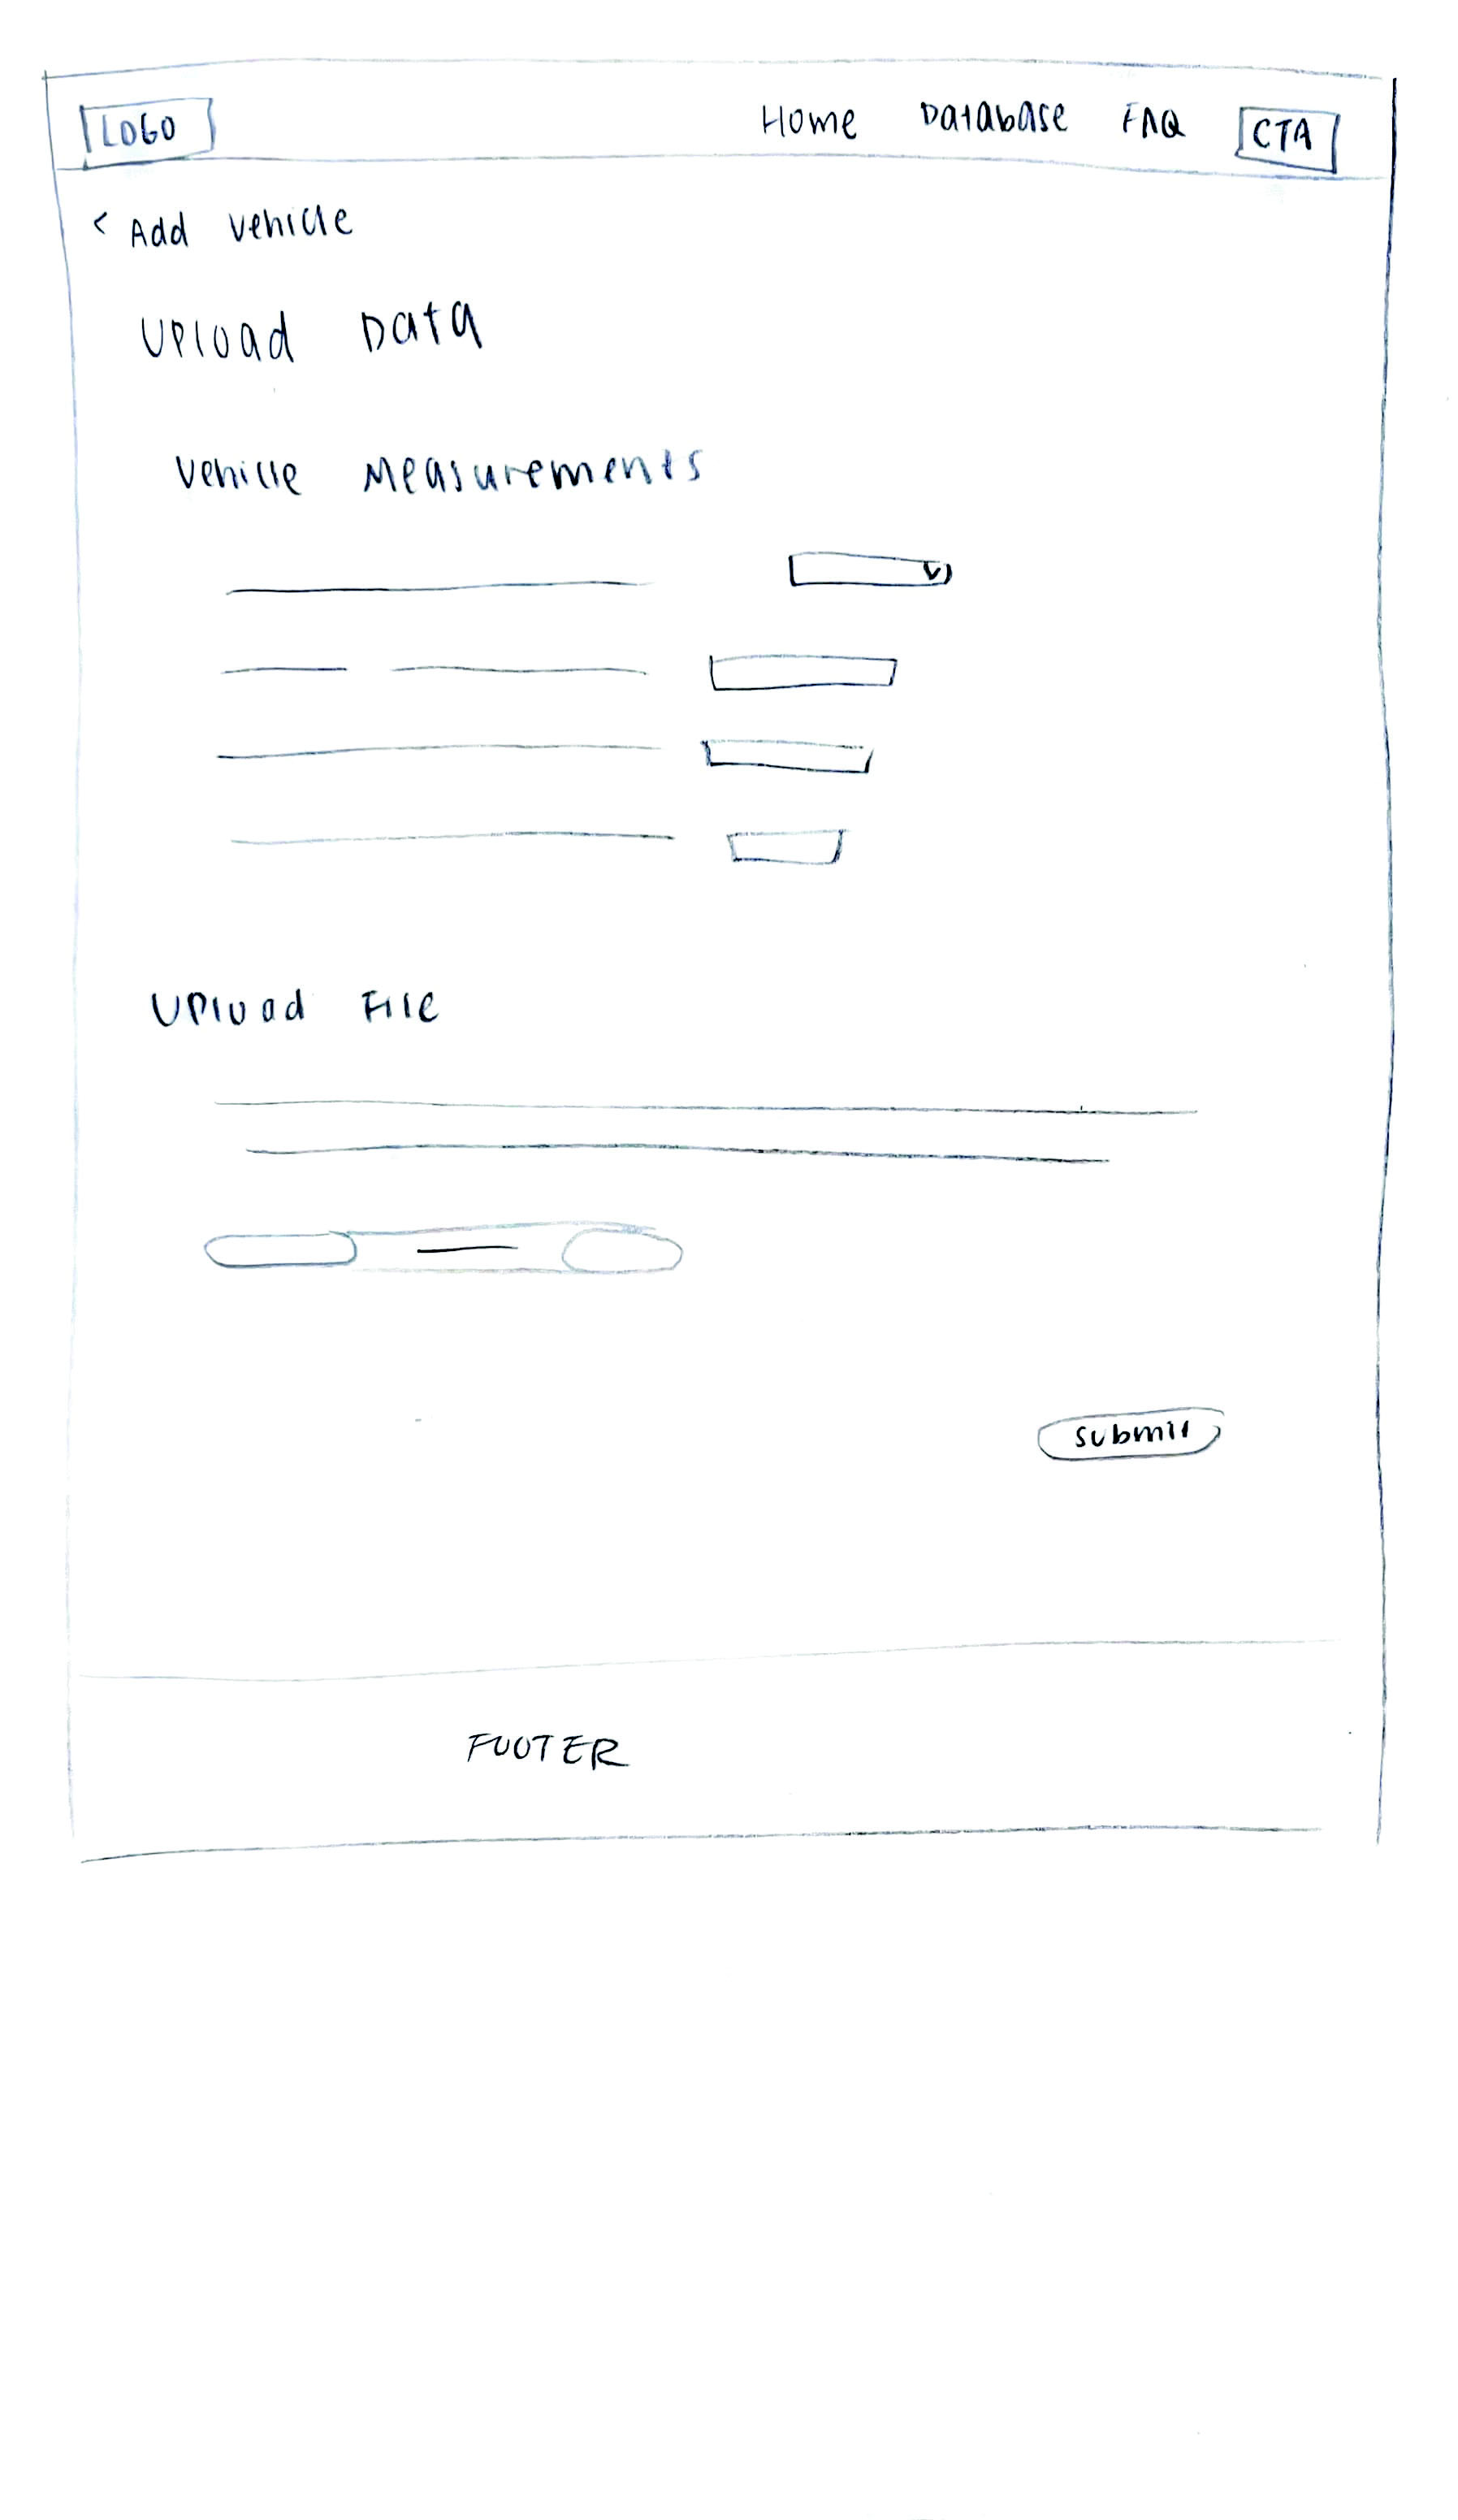 LOGO Home Database FAQ CTA
< Add Vehicle
Upload Data
Vehicle Measurements
Upload File
submit
FOOTER